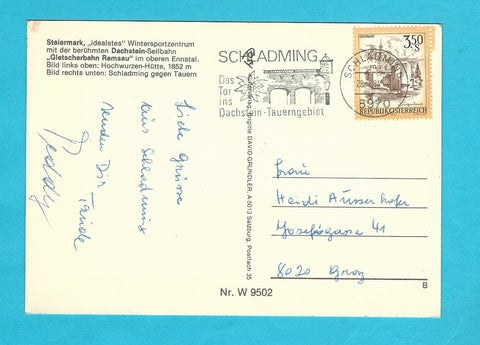 Steiermark, „idealstes" Wintersportzentrum
mit der berühmten Dachstein-Seilbahn
„Gletscherbahn Ramsau" im oberen Ennstal.
Bild links oben: Hochwurzen-Hütte, 1852 m
Bild rechts unten: Schladming gegen Tauern
Liebe Grüsse
aus Schladming
senden Dir
Teddy
Brigitte DAVID-GRUNDLER, A-5013 Salzburg, Postfach 35
Nr. W 9502
SCHLADMING
Das
Tor
ins
Dachstein-Tauerngebiet
SCHLADMING
8970
3.50
REPUBLIK ÖSTERREICH
Frau
Heidi Ausserhofer
Josefigasse 41
8020 Graz
B